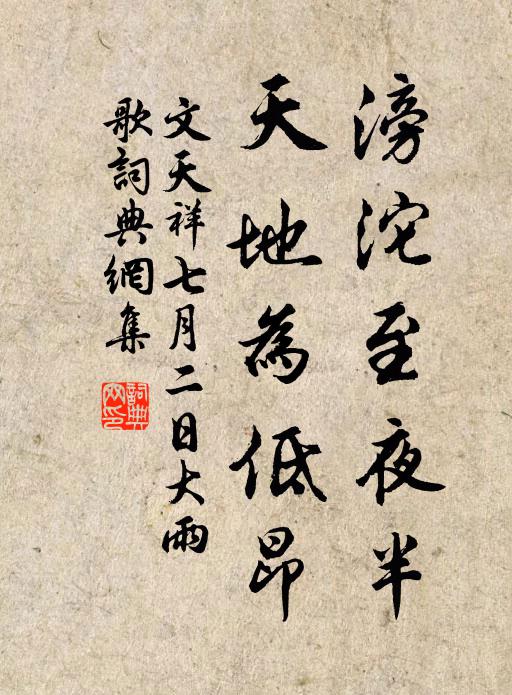 滂沱至夜半
天地為低昂
文天祥七月二日大雨
歌詞典網集
詞典
網印